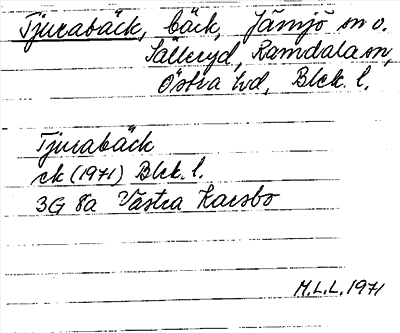 Tjurabäck, bäck, Jämjö sn o.
Sälleryd, Ramdala sn,
Östra hd, Blek. l.
Tjurabäck
ek (1971) Blek. l.
3G 8a Västra Karsbo
M.L.L. 1971